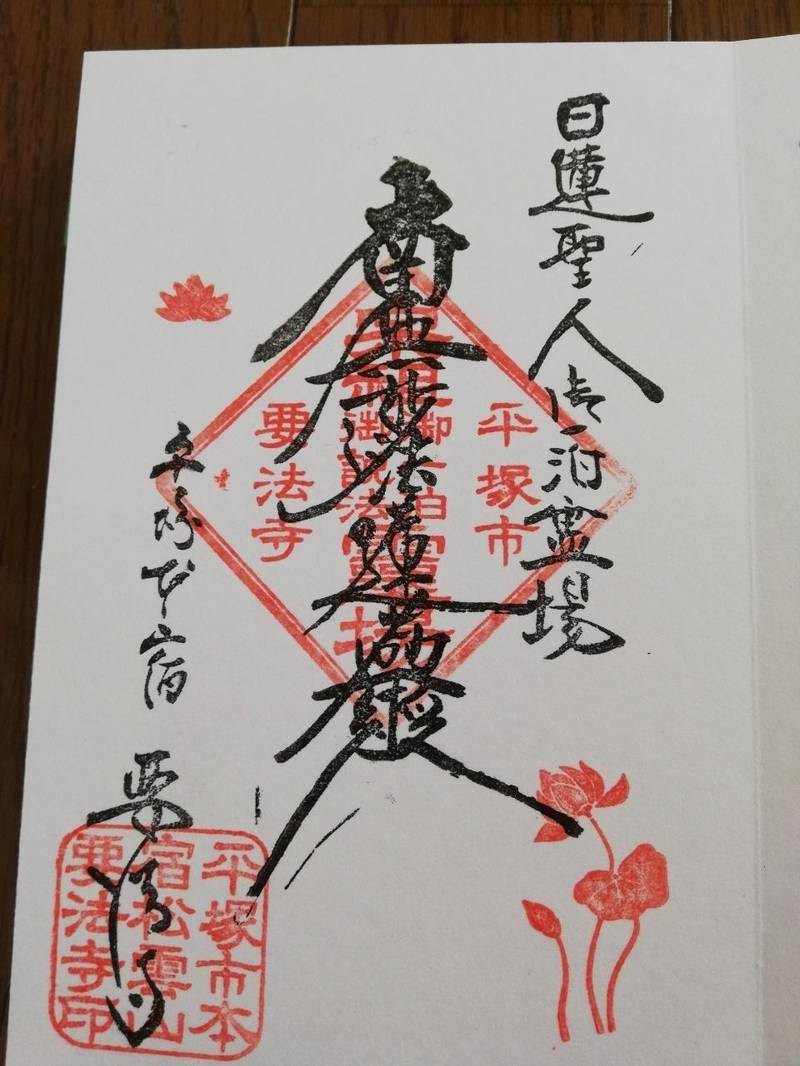 日蓮聖人御一泊霊場
南無妙法蓮華經
平塚本宿
要法寺
平塚市
御一泊
御説法
霊場
要法寺
平塚市本
宿松雲山
要法寺印